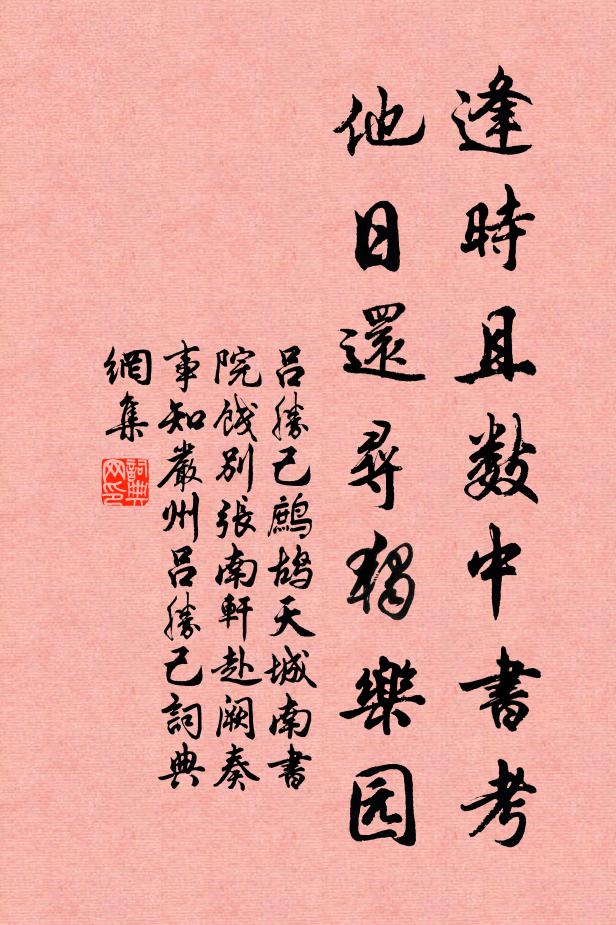 逢時且数中書考
他日還尋独樂园
吕勝己鷓鴣天城南書
院餞别張南軒赴闕奏
事知嚴州吕勝己詞典
網集
詞典
网印